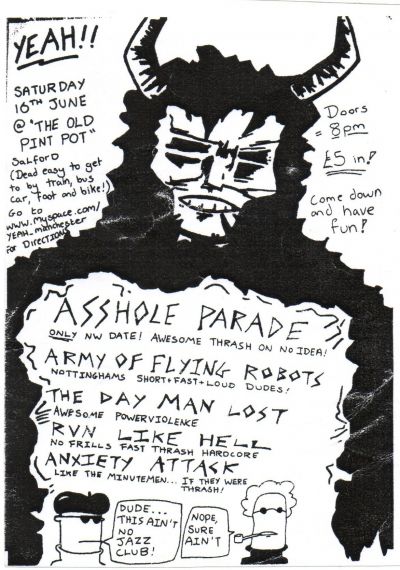 YEAH!!
SATURDAY
16TH JUNE
@ "THE OLD
PINT POT"
SALFORD
(Dead easy to get
to by train, bus
car, foot and bike!)
Go to
www.Myspace.com/
YEAH_manchester
For Directions
Doors
= 8pm
£5 in!
Come down
and have
fun!
ASSHOLE PARADE
ONLY NW DATE! AWESOME THRASH ON NO IDEA!
ARMY OF FLYING ROBOTS
NOTTINGHAMS SHORT+FAST+LOUD DUDES!
THE DAY MAN LOST
AWESOME POWERVIOLENCE
RUN LIKE HELL
NO FRILLS FAST THRASH HARDCORE
ANXIETY ATTACK
LIKE THE MINUTEMEN... IF THEY WERE
THRASH!
DUDE...
THIS AIN'T
NO
JAZZ
CLUB!
NOPE,
SURE
AIN'T